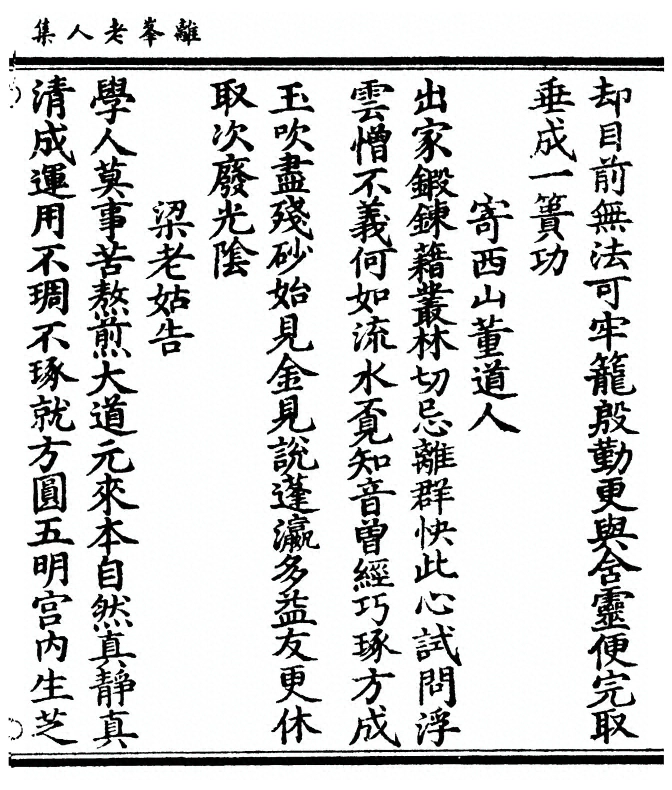 離峯老人集
却目前無法可牢籠殷勤更與含靈便完取
垂成一簣功
寄西山董道人
出家鍛鍊藉叢林切忌離群快此心試問浮
雲憎不義何如流水覔知音曾經巧琢方成
玉吹盡殘砂始見金見說蓬瀛多益友更休
取次廢光陰
梁老姑告
學人莫事苦熬煎大道元來本自然真靜真
清成運用不琱不琢就方圓五明宫内生芝